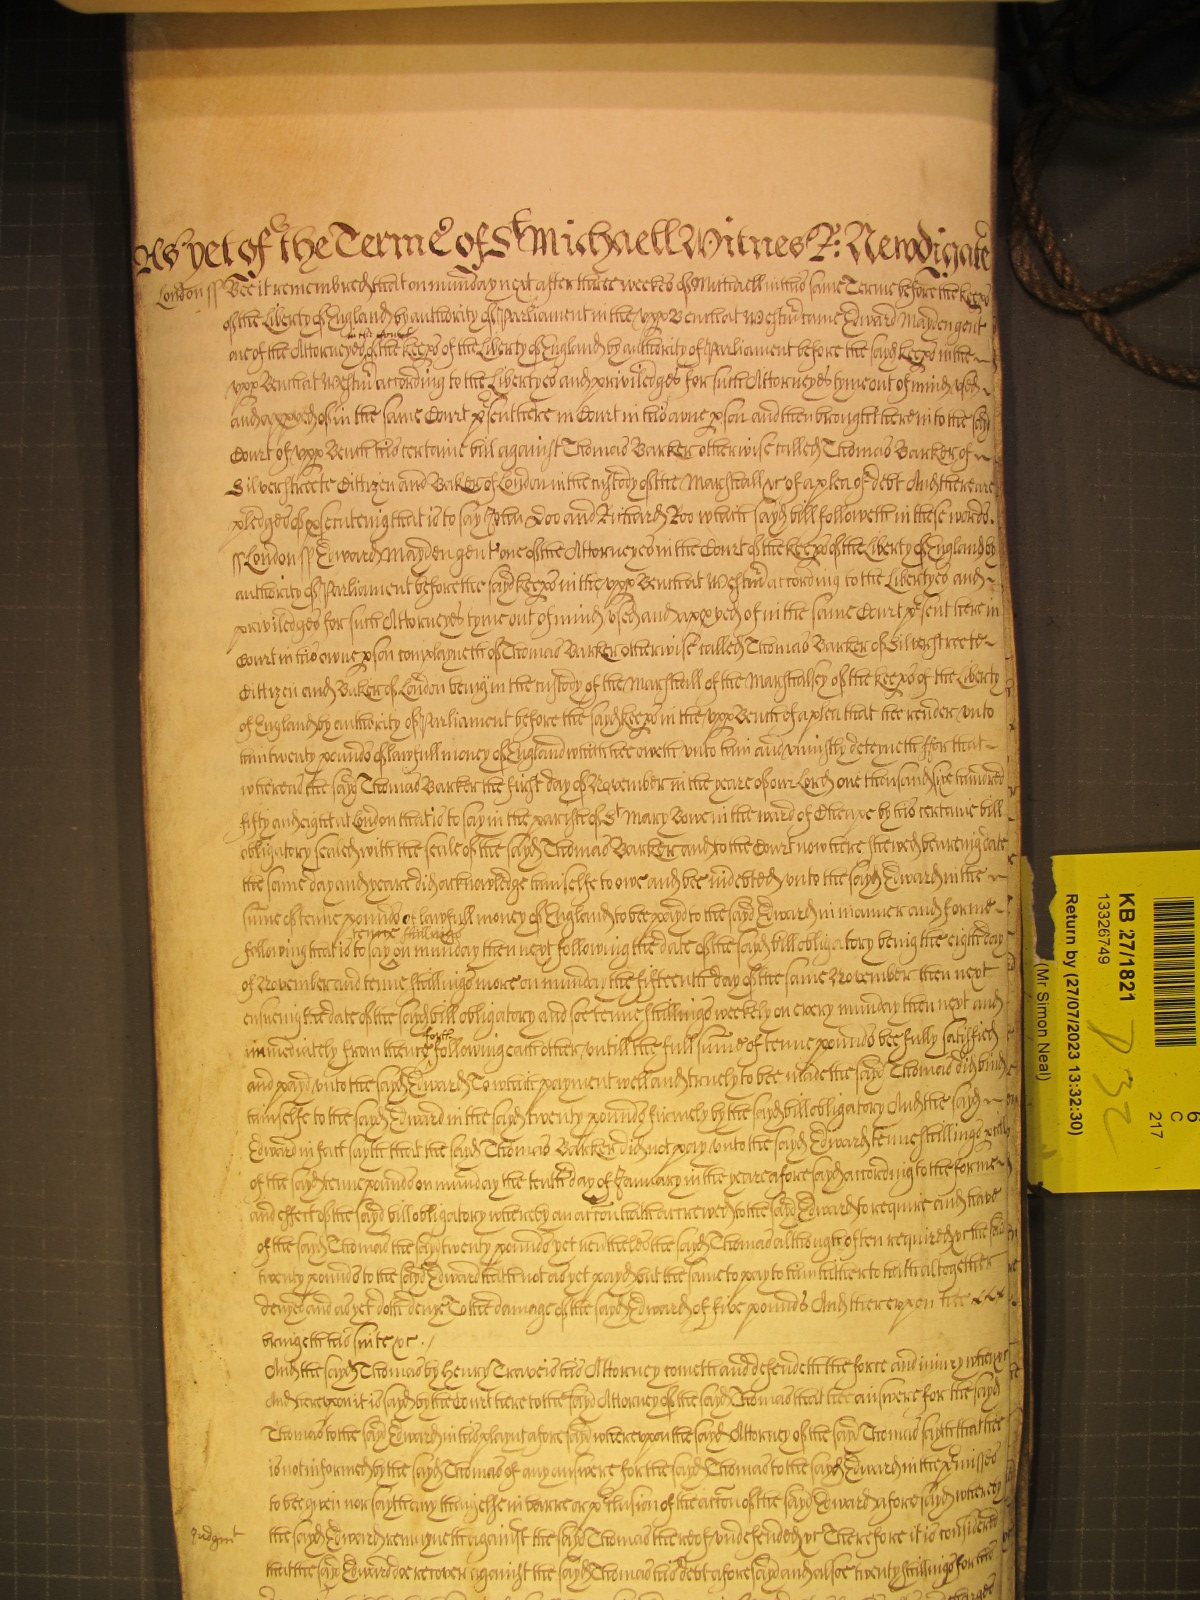 As yet of the Terme of St Michaell Witnes R: Newdigate
London ss Bee it remembred that on munday next after three weekes of St Michaell in this same Terme before the keeps
of the Liberty of England by authority of Parliament in the upp Bench at Westmr came Edward Mayden gent
in the Court
one of the Attorneyes of the keeps of the Liberty of England by authority of Parliament before the sayd keeps in the
upp Bench at Westmr according to the Libertyes and priviledges for such Attorneyes tyme out of mind used
and approved of in the same Court psent here in Court in his owne pson and then brought here into the sayd
Court of upp Bench his certaine bill against Thomas Barker otherwise called Thomas Barker of
Silverstreete Citizen and Baker of London in the custody of the Marshall &c of a plea of debt And there are
pledges of psecuteing that is to say John Doo and Richard Roo which sayd bill followeth in these words.
ss London ss Edward Mayden gent one of the Attorneyes in the Court of the keeps of the Liberty of England by
authority of Parliament before the sayd keeps in the upp Bench at Westmr according to the Libertyes and
priviledges for such Attorneyes tyme out of mind used and approved of in the same Court psent here in
Court in his owne pson complayneth of Thomas Barker otherwise called Thomas Barker of Silverstreete
Citizen and Baker of London being in the custody of the Marshall of the Marshallsey of the keeps of the Liberty
of England by authority of Parliament before the sayd keeps in the upp Bench of a plea that hee render unto
him twenty pounds of lawfull money of England which hee oweth unto him and uniustly deteyneth ffor that
whereas the sayd Thomas Barker the first day of November in the yeare of our Lord one thousand six hundred
fifty and eight at London that is to say in the parish of St Mary Bowe in the ward of Cheape by his certaine bill
obligatory sealed with the seale of the sayd Thomas Barker and to the Court now here shewed beareing date
the same day and yeare did acknowledge himselfe to owe and bee indebted unto the sayd Edward in the
sume of tenne pounds of lawfull money of England to bee payd to the sayd Edward in manner and forme
tenne shillings
following that is to say on munday then next following the date of the sayd bill obligatory being the eight day
of November and tenne shillings more on munday the fifteenth day of the same November then next
ensueing the date of the sayd bill obligatory and soe tenne shillings weekely on every munday then next and
forth
immediately from thence following each other untill the full sume of tenne pounds bee fully satisfied
and payd unto the sayd Edward To which payment well and truely to bee made the sayd Thomas did bind
himselfe to the sayd Edward in the sayd twenty pounds firmely by the sayd bill obligatory And the sayd
Edward in fact sayth that the sayd Thomas Barker did not pay unto the sayd Edward tenne shillings pcell
of the sayd tenne pounds on munday the tenth day of January in the yeare aforesayd according to the forme
and effect of the sayd bill obligatory whereby an accon hath accrewed to the sayd Edward to require and have
of the sayd Thomas the sayd twenty pounds yet neverthelesse the sayd Thomas although often required &c the said
twenty pounds to the sayd Edward hath not as yet payd but the same to pay to him hitherto hath altogether
denyed and as yet doth deny To the damage of the sayd Edward of five pounds And thereupon hee
bringeth this suite &c.
And the sayd Thomas by Henry Travers his Attorney cometh and defendeth the force and iniury when &c
And hereupon it is sayd by the Court here to the sayd Attorney of the sayd Thomas that hee answere for the sayd
Thomas to the sayd Edward in this playnt aforesayd whereupon the sayd Attorney of the sayd Thomas sayth that hee
is not informed by the sayd Thomas of any answere for the sayd Thomas to the sayd Edward in the pmisses
to bee given nor sayth any thing else in barre or pclusion of the accon of the sayd Edward aforesayd whereby
Judgmt
the sayd Edward remayneth against the sayd Thomas thereof undefended &c Therefore it is considered
that the sayd Edward doe recover against the sayd Thomas his debt aforesayd and alsoe twenty shillings for his
KB 27/1821
13326749
Return by (27/07/2023 13:32:30)
(Mr Simon Neal)
6
C
217